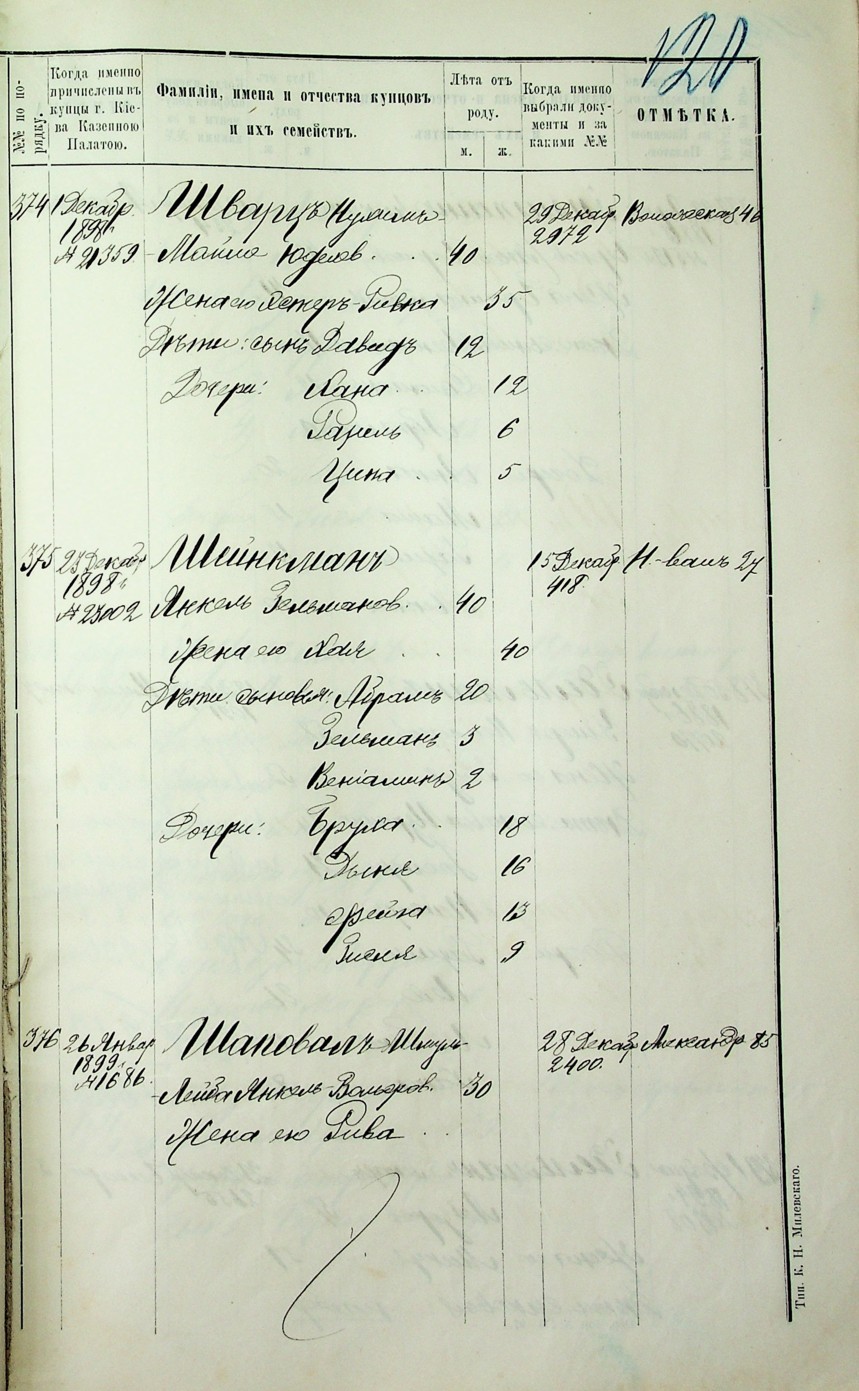 120
№№ по по-
рядку.
Когда именно
причислены въ
купцы г. Кіе-
ва Казенною
Палатою.
Фамиліи, имена и отчества купцовъ
и ихъ семействъ.
Лѣта отъ
роду.
м. ж.
Когда именно
выбрали доку-
менты и за
какими №№
ОТМѢТКА.
374 1 Декабр. Шварцъ 29 Декабр 46
1898 2972
№ 21359 Юделев. 40
Жена его Эстеръ-Ривка 35
Дѣти: сынъ Давидъ 12
Дочери: Хана 12
Рахель 6
Цина 5
375 23 Декабр Шейнкманъ 15 Декабр Н.-валъ 27
1898 418.
№ 23002 Янкель Зельманов. 40
Жена его Хая 40
Дѣти: сыновья: Абрамъ 20
Зельманъ 3
Веніаминъ 2
Дочери: Бруха 18
Дыня 16
Фейга 13
Зисля 9
376 26 Январ Шаповалъ Шмуль- 28 Декабр Александр 85
1899 2400.
№ 1686. -Лейба Янкель-Вольфов. 30
Жена его Рива
Тип. К. Н. Милевскаго.